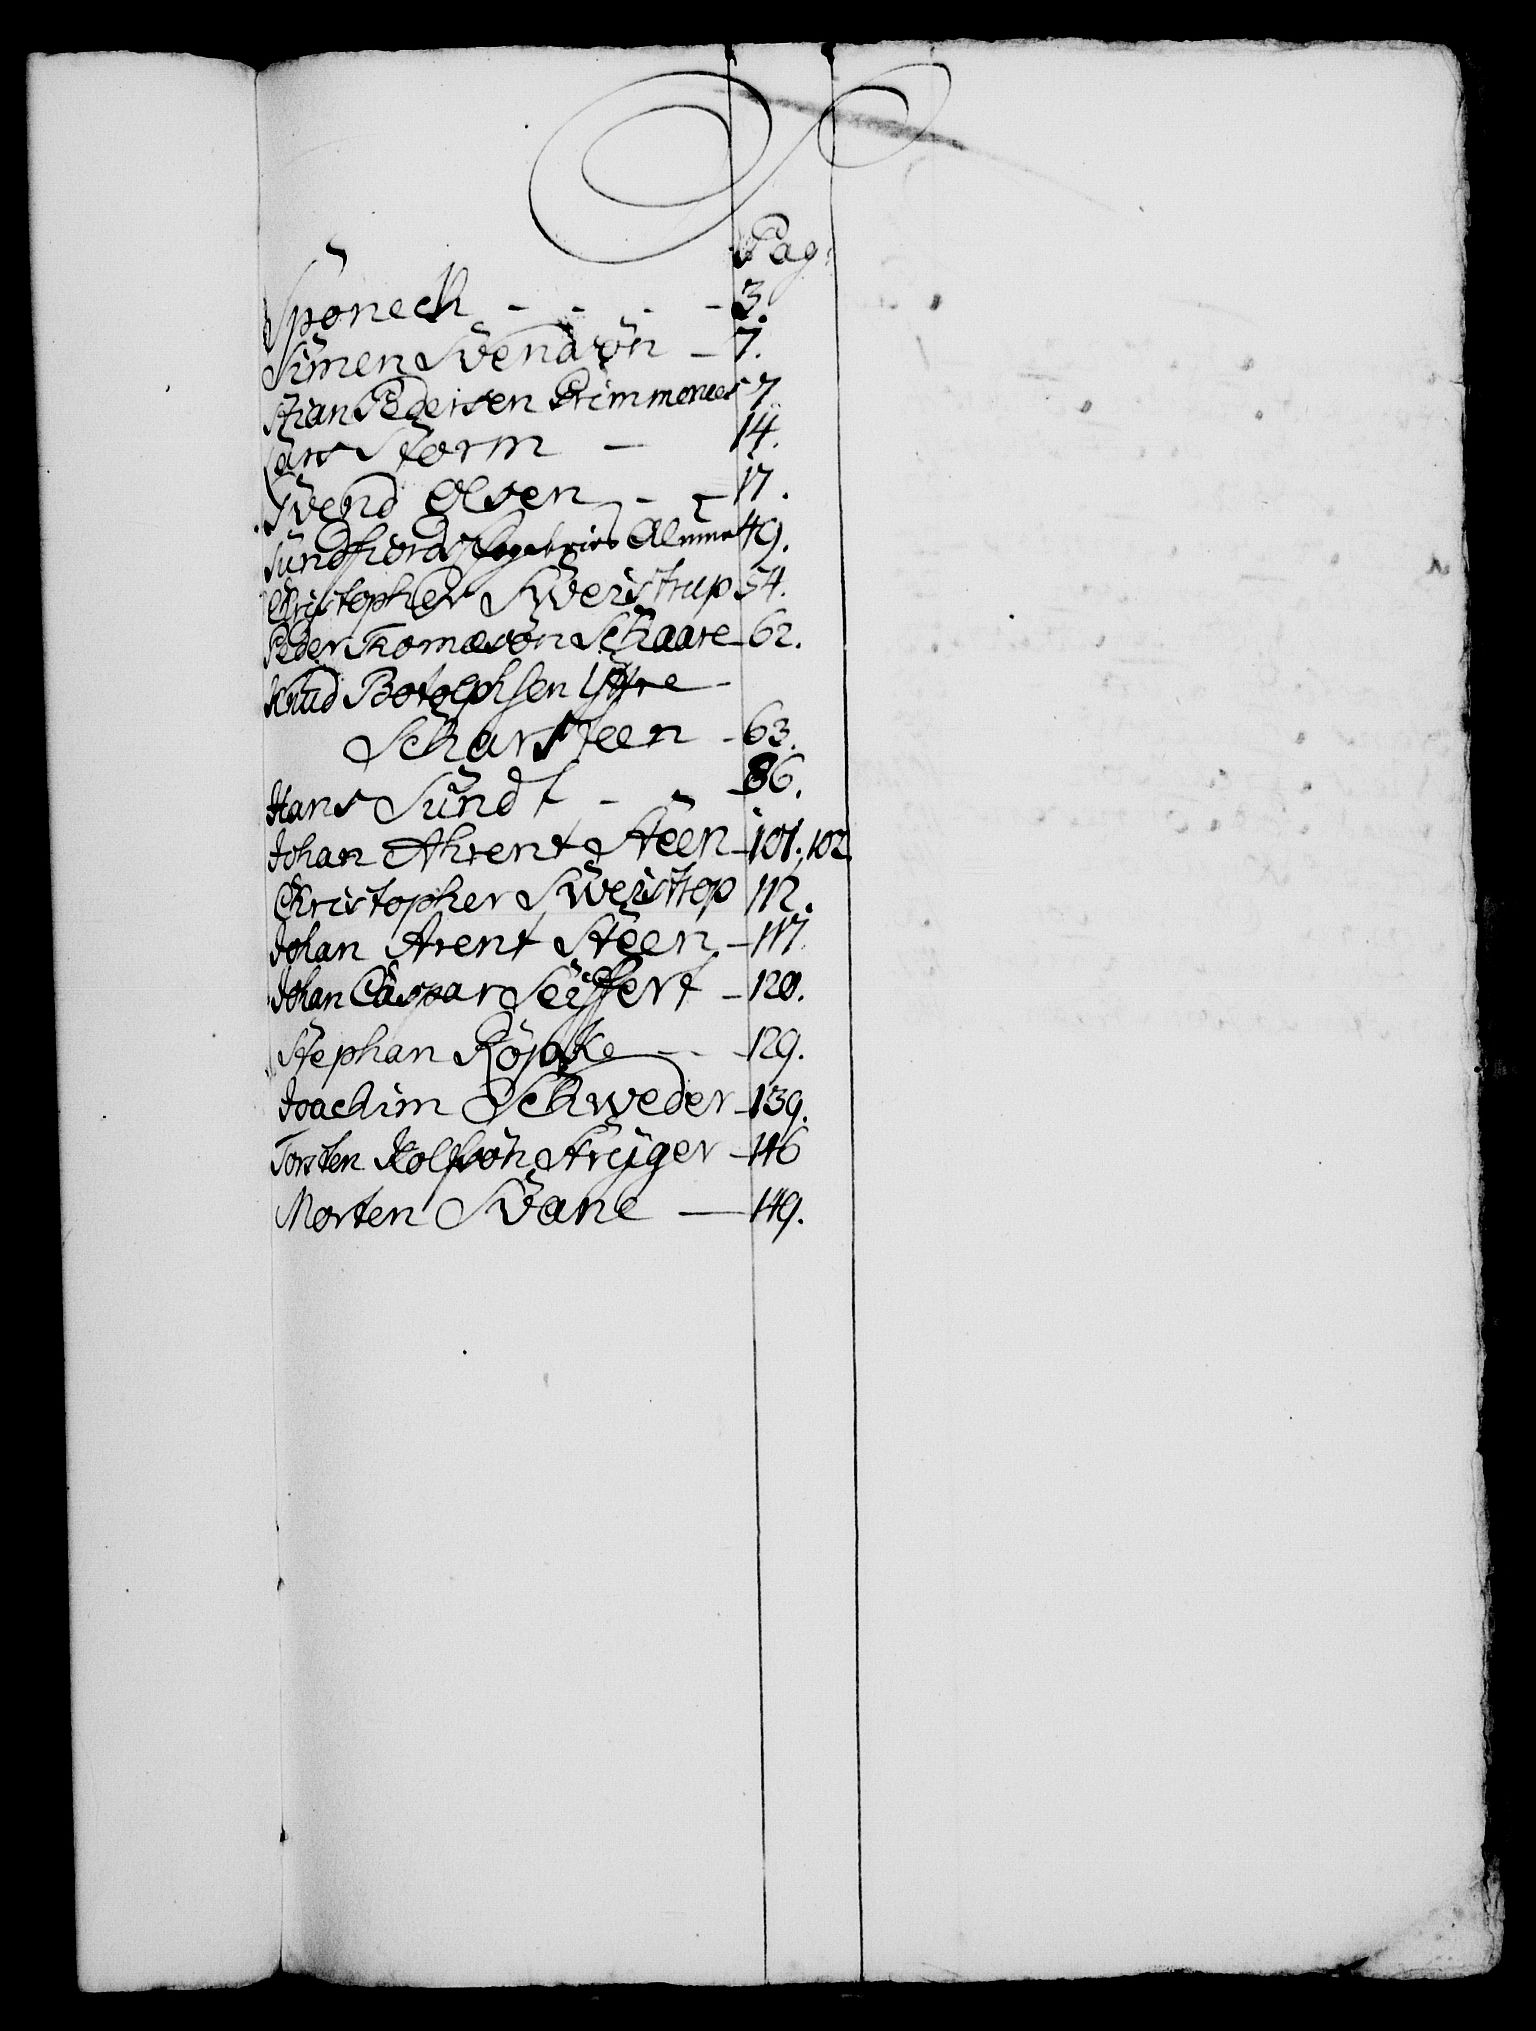 S
Pag:
Sponeck - - - - 3.
Simen Svendsøn - 7.
Stian Pedersen 7
Lars Storm - 14.
Svend Olsen - - 17.
Sundfiords Fogderies Almue 49.
Christopher Sweistrup 54.
Peder Thomæsøn Schaare - 62.
Knud Botolphsen Yttre -
Scharsteen - 63.
Hans Sundt - - 86.
Johan Ahrent Steen - 101. 102.
Christopher Sweistrop 112.
Johan Arent Steen - 117.
Johan Casper Seiffert - 120.
Stephan Köpke - - 129.
Joachim Schweder - 139.
Torsten Rolfsøn Stryger - 146
Morten Svane - 149.